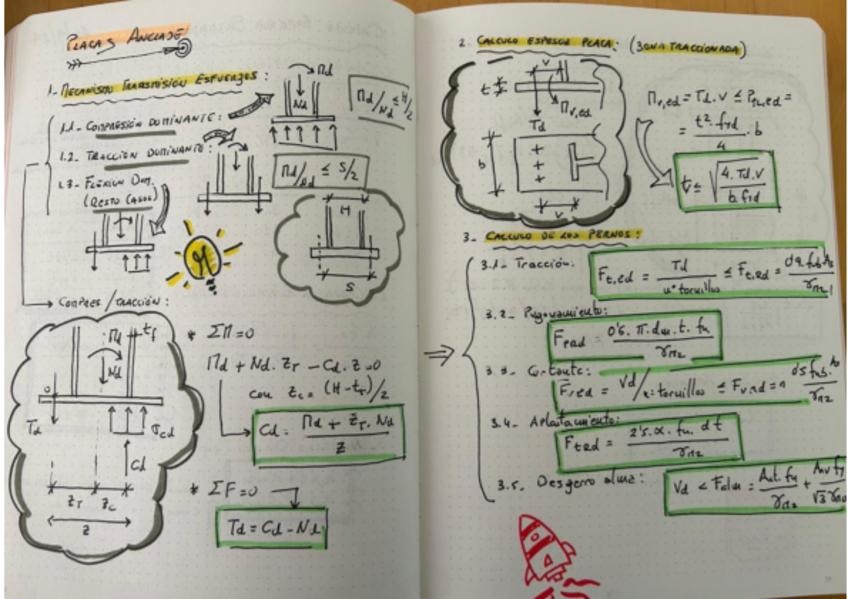 PLACAS ANCLAJE
1- MECANISMO TRANSMISIÓN ESFUERZOS:
Md
Nd
Md/Nd ≤ H/2
1.1- COMPRESIÓN DOMINANTE:
1.2. TRACCIÓN DOMINANTE:
Md/Nd ≤ S/2
1.3- FLEXIÓN DOM.
(RESTO CASOS)
H
S
COMPRES/TRACCIÓN:
Md
tf
Nd
0
Td
σcd
Cd
ZT
Zc
Z
* ΣM=0
Md + Nd. ZT - Cd. Z = 0
con Zc = (H-tf)/2
Cd = (Md + ZT. Nd) / Z
* ΣF=0
Td = Cd - Nd
2. CALCULO ESPESOR PLACA: (ZONA TRACCIONADA)
v
t
Mr,ed
Td
b
v
Mr,ed = Td. v ≤ Ppl,ed =
= (t². fyd / 4) . b
t ≤ √(4. Td. v / b. fyd)
3- CALCULO DE LOS PERNOS:
3.1- Tracción:
Ft,ed = Td / nº tornillos ≤ Ft,Rd =
γM2
3.2- Punzonamiento:
= 0'6. π. dm. t. fu / γM2
3.3- Cortante:
Vd / nº tornillos ≤ Fv,Rd = n
γM2
3.4- Aplastamiento:
= 2'5. α. fu. d t / γM2
3.5. Desgarro alma:
Vd <